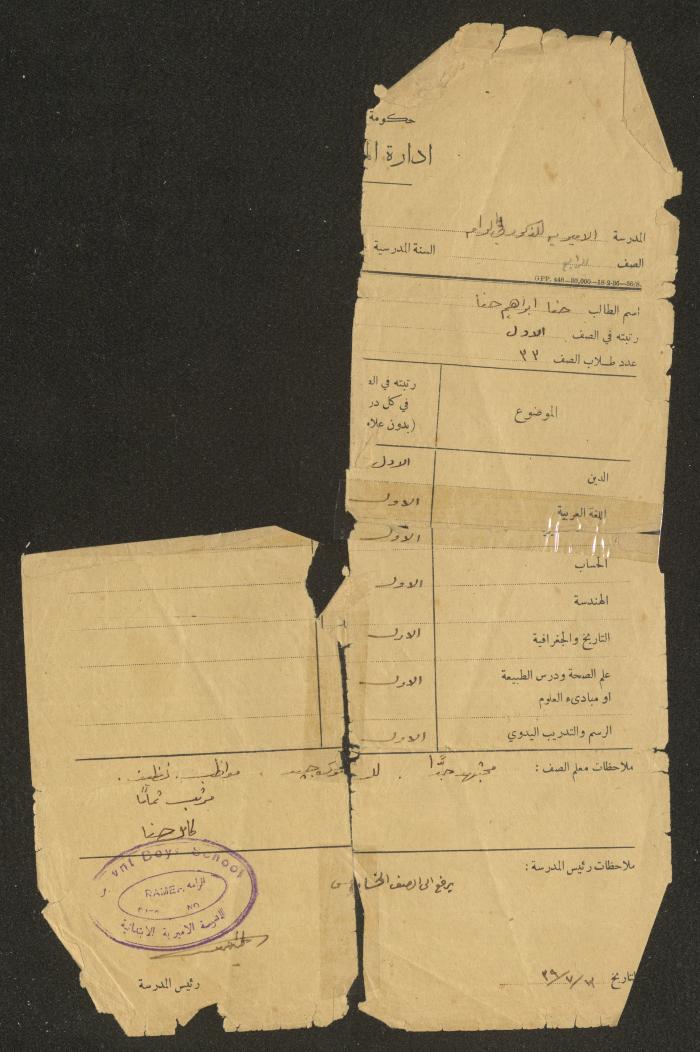 حكومة
ادارة الم
المدرسة الاميرية للذكور في الرامه
الصف الرابع السنة المدرسية
GPP. 448—80,000—18-9-36—36/S.
اسم الطالب حنا ابراهيم حنا
رتبته في الصف الاول
عدد طلاب الصف ٣٣
الموضوع
رتبته في الص
في كل در
(بدون علام
الدين الاول
اللغة العربية الاول
الاول
الحساب
الاول
الهندسة
التاريخ والجغرافية الاول
علم الصحة ودرس الطبيعة الاول
او مبادىء العلوم
الرسم والتدريب اليدوي الاول
ملاحظات معلم الصف : مجتهد جدًّا . جيد . مواظب . نظيف .
مرتب تمامًا
كامل حنا
ملاحظات رئيس المدرسة :
يرفع الى الصف الخامس
vnt Boys School
الرامه
RAMEH
المدرسة الاميرية الابتدائية
رئيس المدرسة
التاريخ ٣٩/٧/